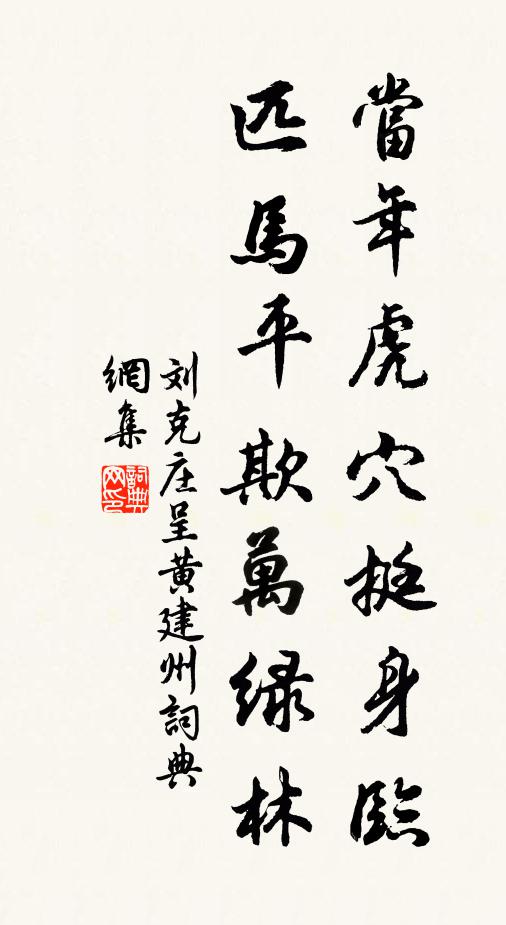 當年虎穴挺身臨
匹馬平欺萬緑林
刘克庄呈黄建州詞典
網集
詞典
网印